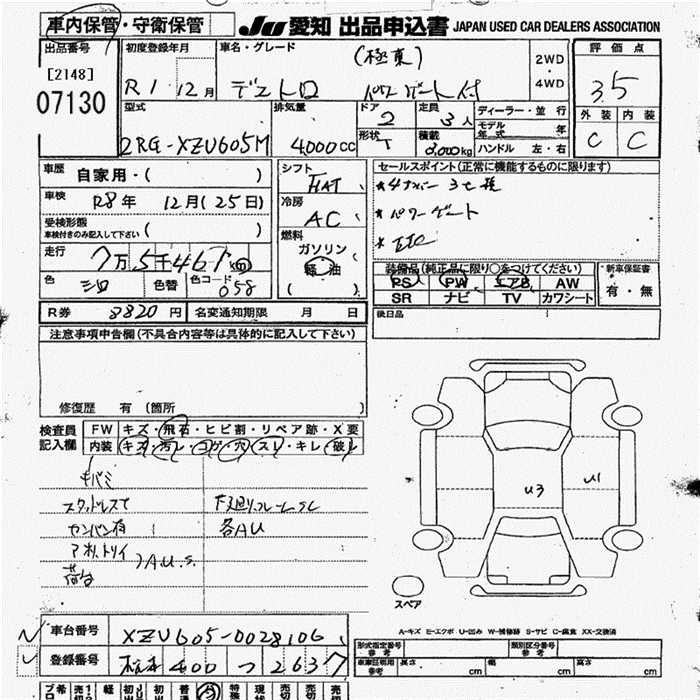 車内保管・守衛保管
JU 愛知 出品申込書 JAPAN USED CAR DEALERS ASSOCIATION
出品番号
[2148]
07130
初度登録年月
R1 12月
車名・グレード
(極東)
デュトロ パワーゲート付
2WD
・
4WD
評価点
3.5
外装 内装
C C
型式
2RG-XZU605M
排気量
4,000cc
ドア
2
形状
定員
3人
積載
3,000kg
ディーラー・並行
モデル年式 年
ハンドル 左・右
車歴 自家用・( )
車検 R8年 12月(25日)
受検形態
車検付きのみ記入して下さい ( )
走行 7万5千467km
色 シロ 色替 色コード 058
シフト
FAT
冷房
AC
燃料
ガソリン
軽油
( )
セールスポイント(正常に機能するものに限ります)
★4ナンバー
★パワーゲート
★ETC
装備品(純正品に限り○をつけてください)
PS PW エアB AW
SR ナビ TV カワシート
新車保証書
有・無
R券 8820円 名変通知期限 月 日
後日品
注意事項申告欄(不具合内容等は具体的に記入して下さい)
修復歴 有 〔箇所
検査員
記入欄
FW キズ・飛石・ヒビ割・リペア跡・X要
内装 キズ・汚レ・コゲ・穴・スレ・キレ・破レ
キバミ
スタッドレス
下廻りフレームSC
センバン有
各AU
アオリ、トリイ
荷台
AU.S.
U3
U1
スペア
A-キズ E-エクボ U-凹み W-補修跡 S-サビ C-腐食 XX-交換済
車台番号 XZU605-0028106
登録番号 400 つ 2637
型式指定番号 参考
類別区分番号 参考
車車証明用 参考 長さ cm 幅 cm 高さ cm